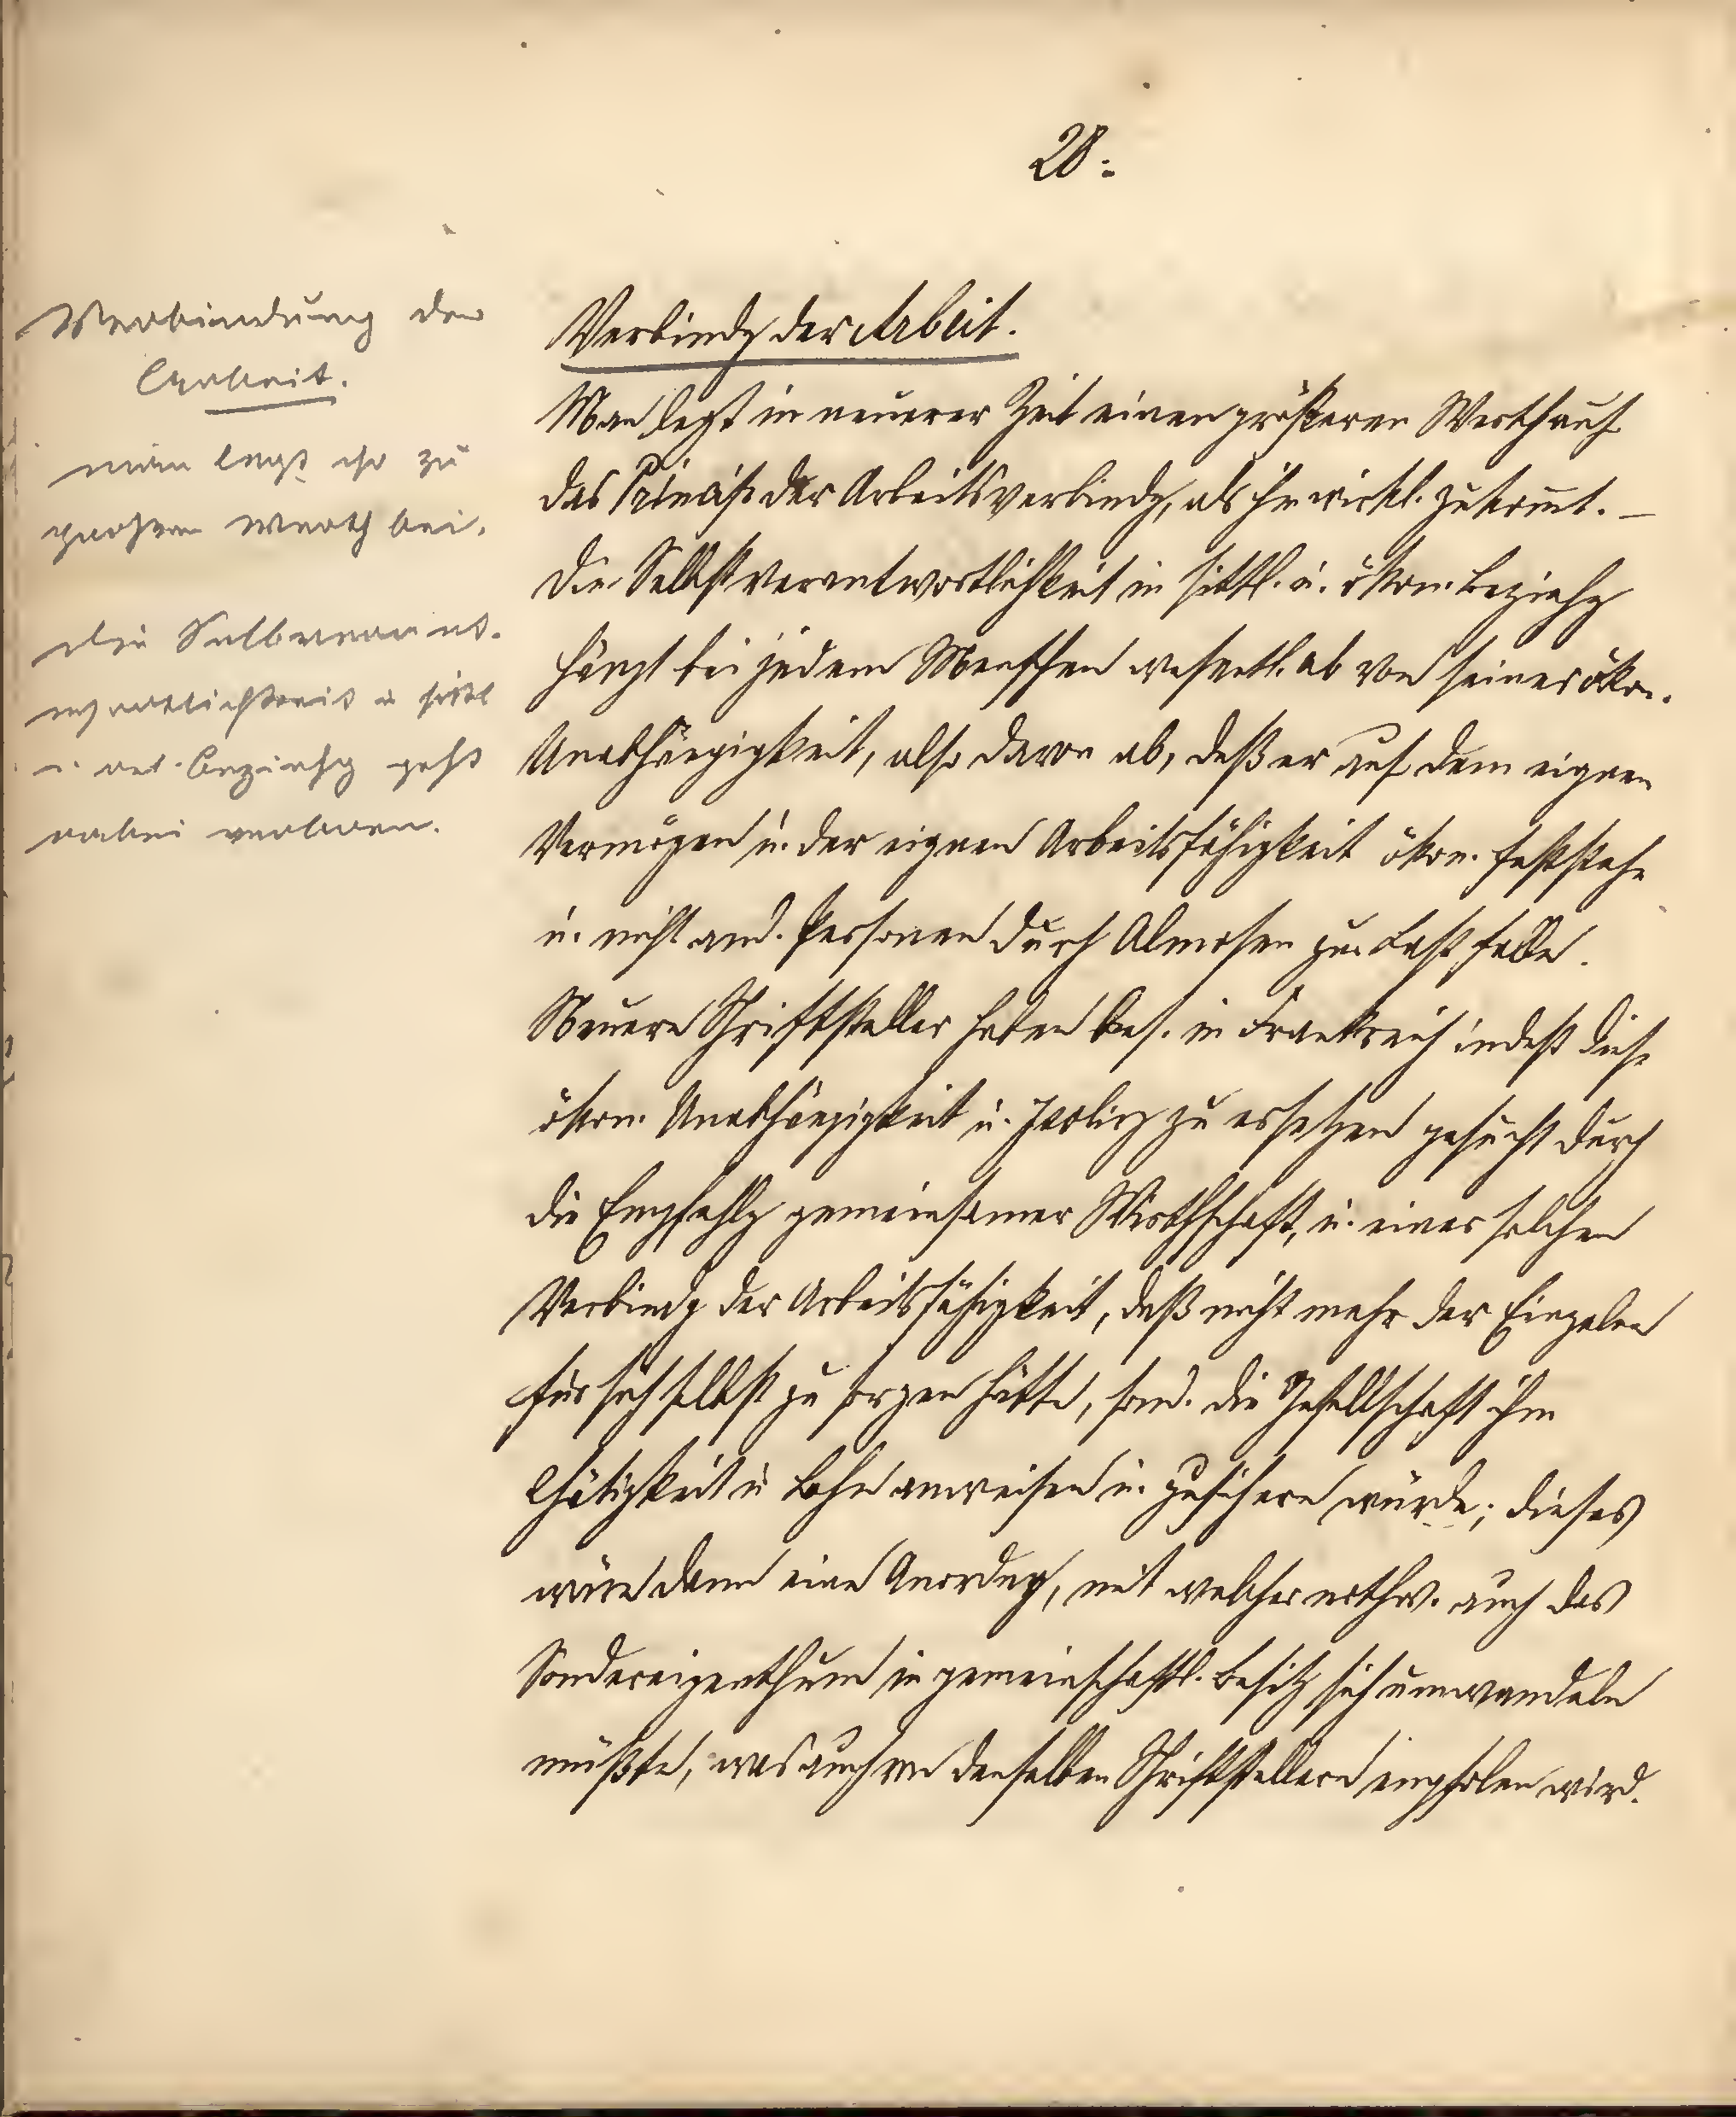 28.
Verbindung der
Arbeit.
man legt ihr zu
großen Werth bei.
Die Selbverant-
wortlichkeit in sittl
u. Beziehg geht
verloren.
Verbindg der Arbeit.
Man legt in neuerer Zeit einen größeren Werth auf
das Princip der Arbeitsverbindg, als ihr wirkl. zukomt. –
Die Selbstverantwortlichkeit in sittl. u. ökon. Beziehg
hängt bei jedem Menschen wesentl. ab von seiner ökon.
Unabhängigkeit, also davon ab, daß er auf dem eignen
Vermögen u. der eignen Arbeitsfähigkeit ökon. feststehe
u. nicht and. Personen durch Almosen zur Last falle.
Neuere Schriftsteller haben bes. in Frankreich indeß diese
ökon. Unabhängigkeit u. Isolirg zu ersetzen gesucht durch
die Empfehlg gemeinsamer Wirthschaft, u. einer solchen
Verbindg der Arbeitsfähigkeit, daß nicht mehr der Einzelne
für sich selbst zu sorgen hätte, sond. die Gesellschaft ihm
Thätigkeit u Lohn anweisen u. zusichern würde; dieses
wäre dann eine Anordng, mit welcher nothw. auch das
Sondereigenthum in gemeinschaftl. Besitz sich umwandeln
müßte, was auch von denselben Schriftstellern empfolen wird.